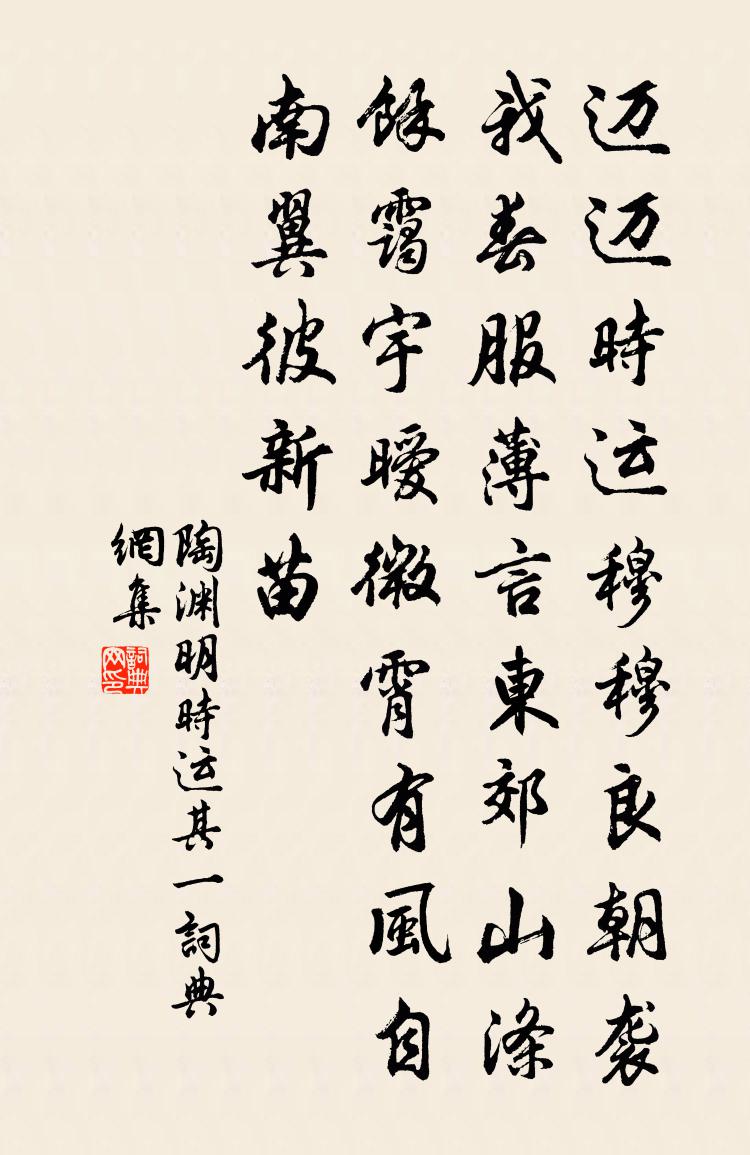 迈迈時运穆穆良朝袭
我春服薄言東郊山涤
餘靄宇曖微霄有風自
南翼彼新苗
陶渊明時运其一詞典
網集
詞典
网印